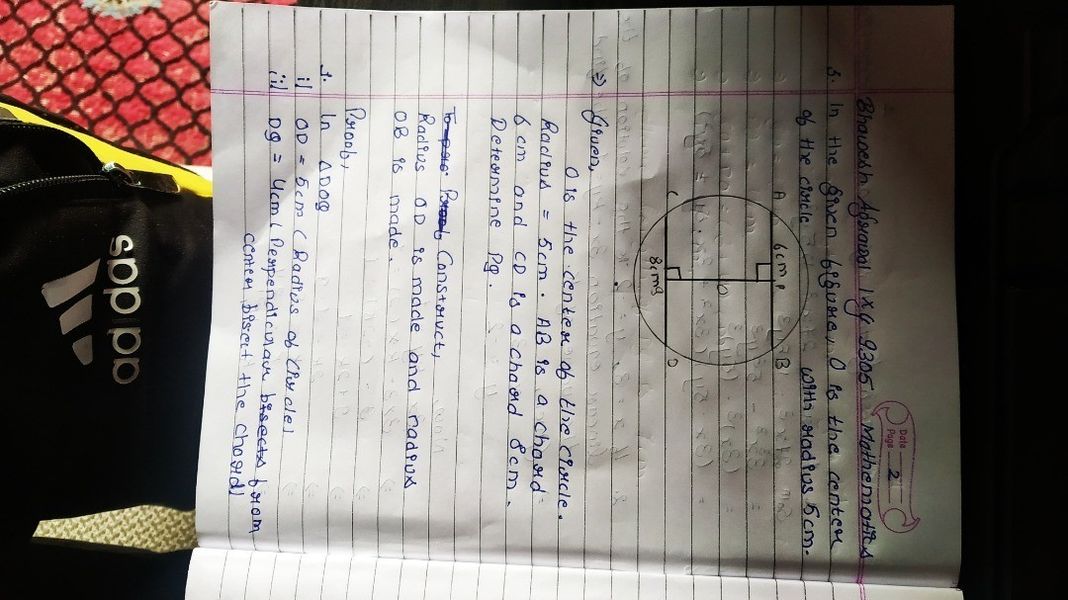 Date
Page 2
Bhavesh Agrawal 1X4 9305 Mathematics
3. In the given figure, O is the center
of the circle with radius 5cm.
A 6cm P B
O
C 8cm Q D
=> Given,
O is the center of the circle.
Radius = 5cm. AB is a chord
6cm and CD is a chord 8cm.
Determine PQ.
Construct,
Radius OD is made and radius
OB is made.
Proof,
1. In ΔDOQ
i) OD = 5cm (Radius of circle)
ii) DQ = 4cm (Perpendicular bisects from
center bisect the chord)
adidas